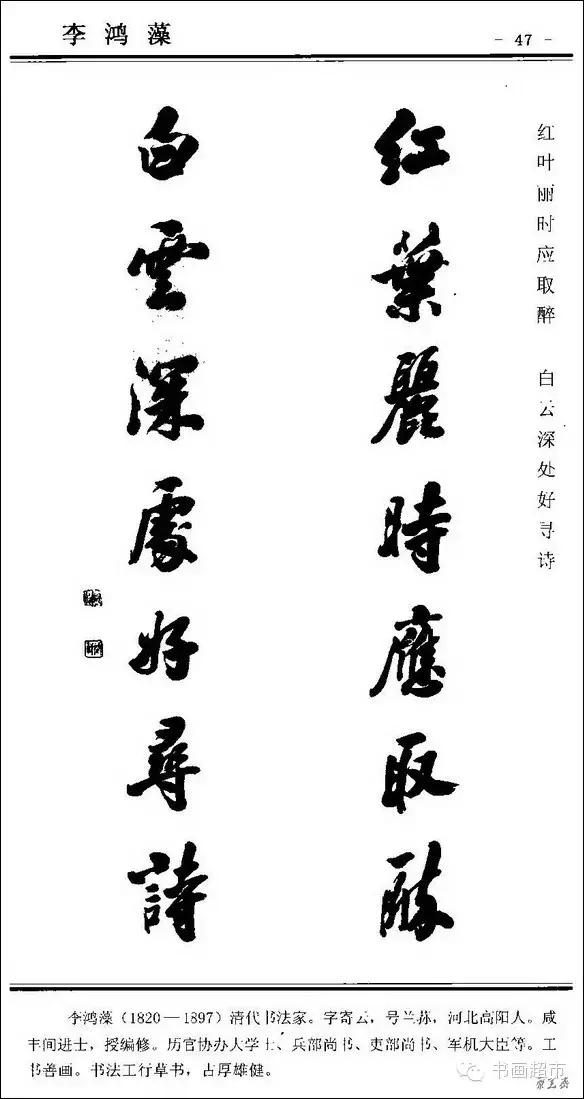 李鸿藻
- 47 -
红叶丽时应取醉 白云深处好寻诗
紅葉麗時應取醉
白雲深處好尋詩
李鸿藻（1820—1897）清代书法家。字寄云，号兰荪，河北高阳人。咸
丰间进士，授编修。历官协办大学士、兵部尚书、吏部尚书、军机大臣等。工
书善画。书法工行草书，古厚雄健。
书画超市